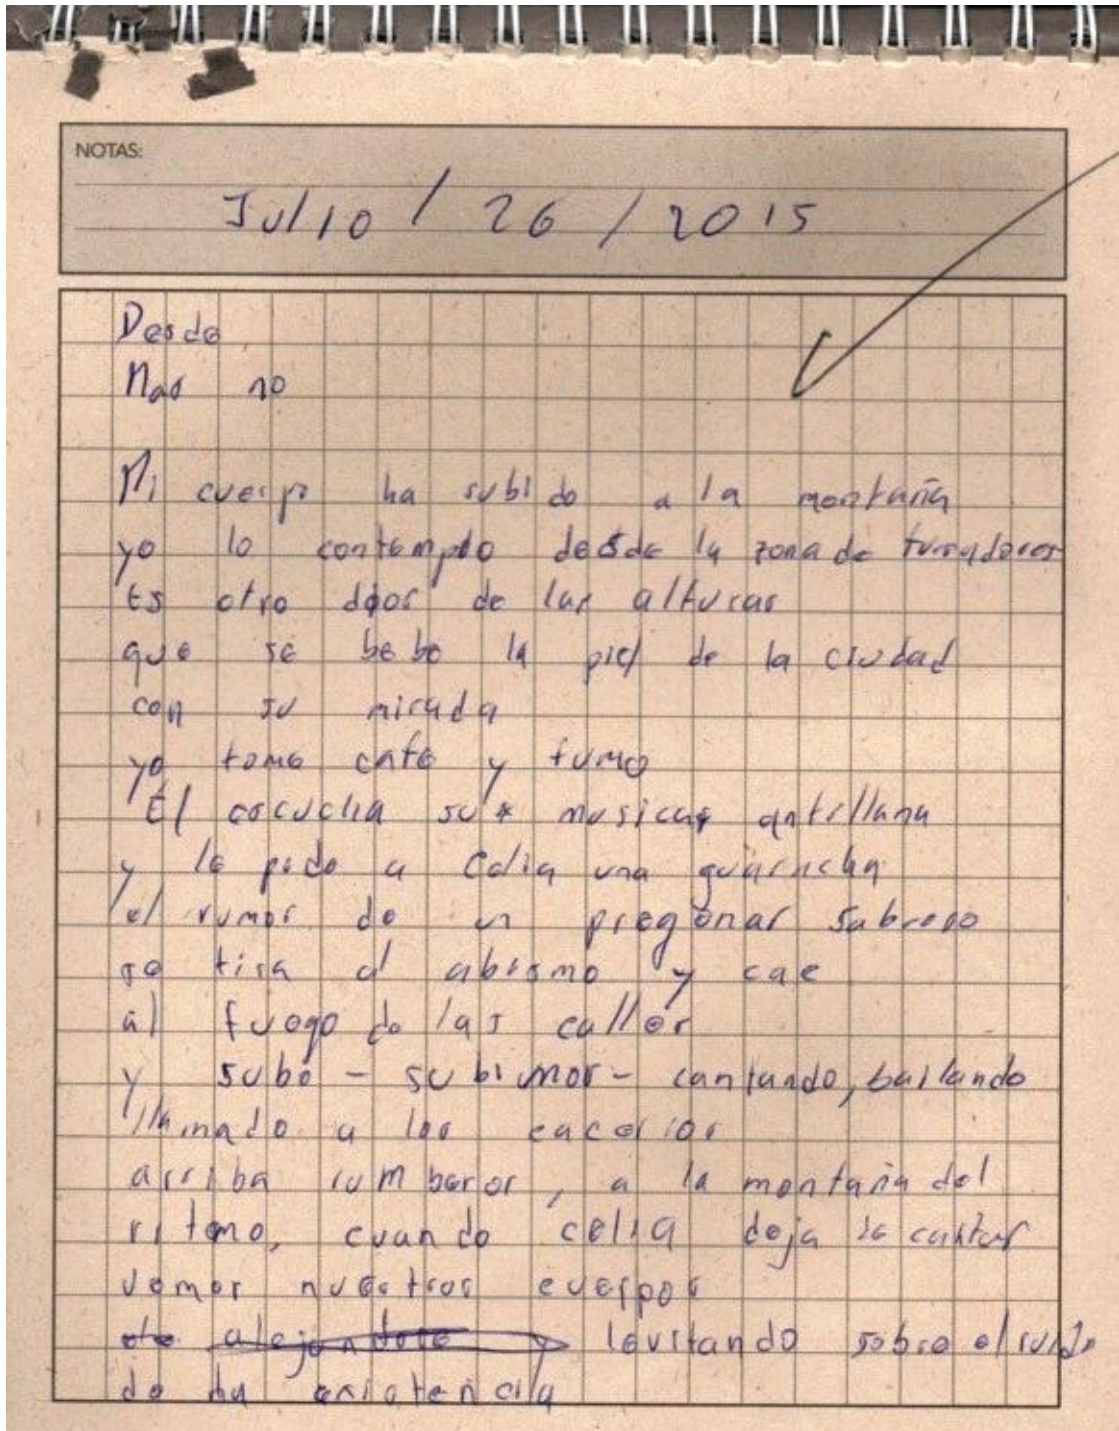 NOTAS:
Julio / 26 / 2015
Desde
Mas no
Mi cuerpo ha subido a la montaña
yo lo contemplo desde la zona de fumadores
Es otro dios de las alturas
que se bebe la piel de la ciudad
con su mirada
yo tomo cafe y fumo
Él escucha su musica antillana
y le pide a Celia una guaracha
el rumor de un pregonar sabroso
se tira al abismo y cae
al fuego de las calles
y sube - subimos - cantando, bailando
llamado a los
arriba rumberos, a la montaña del
ritmo, cuando celia deja de cantar
vemos nuestros cuerpos
alejandose y levitando sobre el ruido
de la existencia